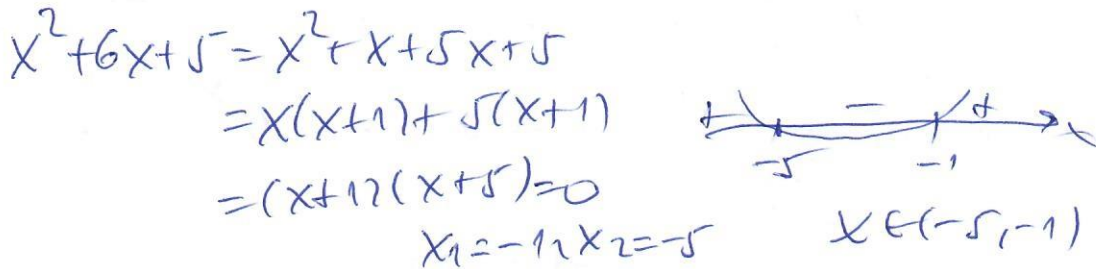 x²+6x+5=x²+x+5x+5
=x(x+1)+5(x+1)
=(x+1)(x+5)=0
x₁=-1, x₂=-5
+ - + x
-5 -1
x∈(-5,-1)